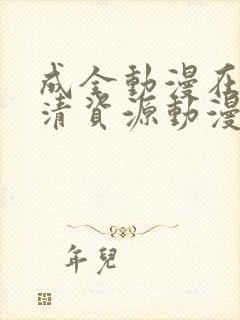 成全動漫在
清資源動漫
年兒